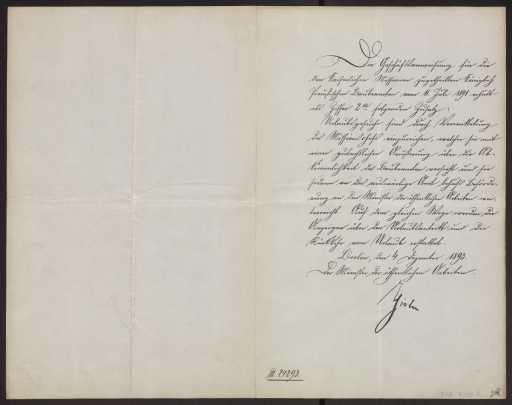 Die Geschäftsanweisung für die
den Kaiserlichen Missionen zugetheilten Königlich
Preußischen Baubeamten vom 11. Juli 1891 erhält
als Ziffer 2a folgenden Zusatz:
Urlaubsgesuche sind durch Vermittelung
des Missionschefs einzureichen, welcher sie mit
einer gutachtlichen Äußerung über die Ab-
kömmlichkeit des Baubeamten versieht und sie
an das Auswärtige Amt behufs Beförde-
rung an den Minister der öffentlichen Arbeiten
Auf dem gleichen Wege werden die
Anzeigen über den Urlaubsantritt und die
Rückkehr vom Urlaub erstattet.
Berlin, den 4. Dezember 1893.
Der Minister der öffentlichen Arbeiten
Thielen
III. 24293.